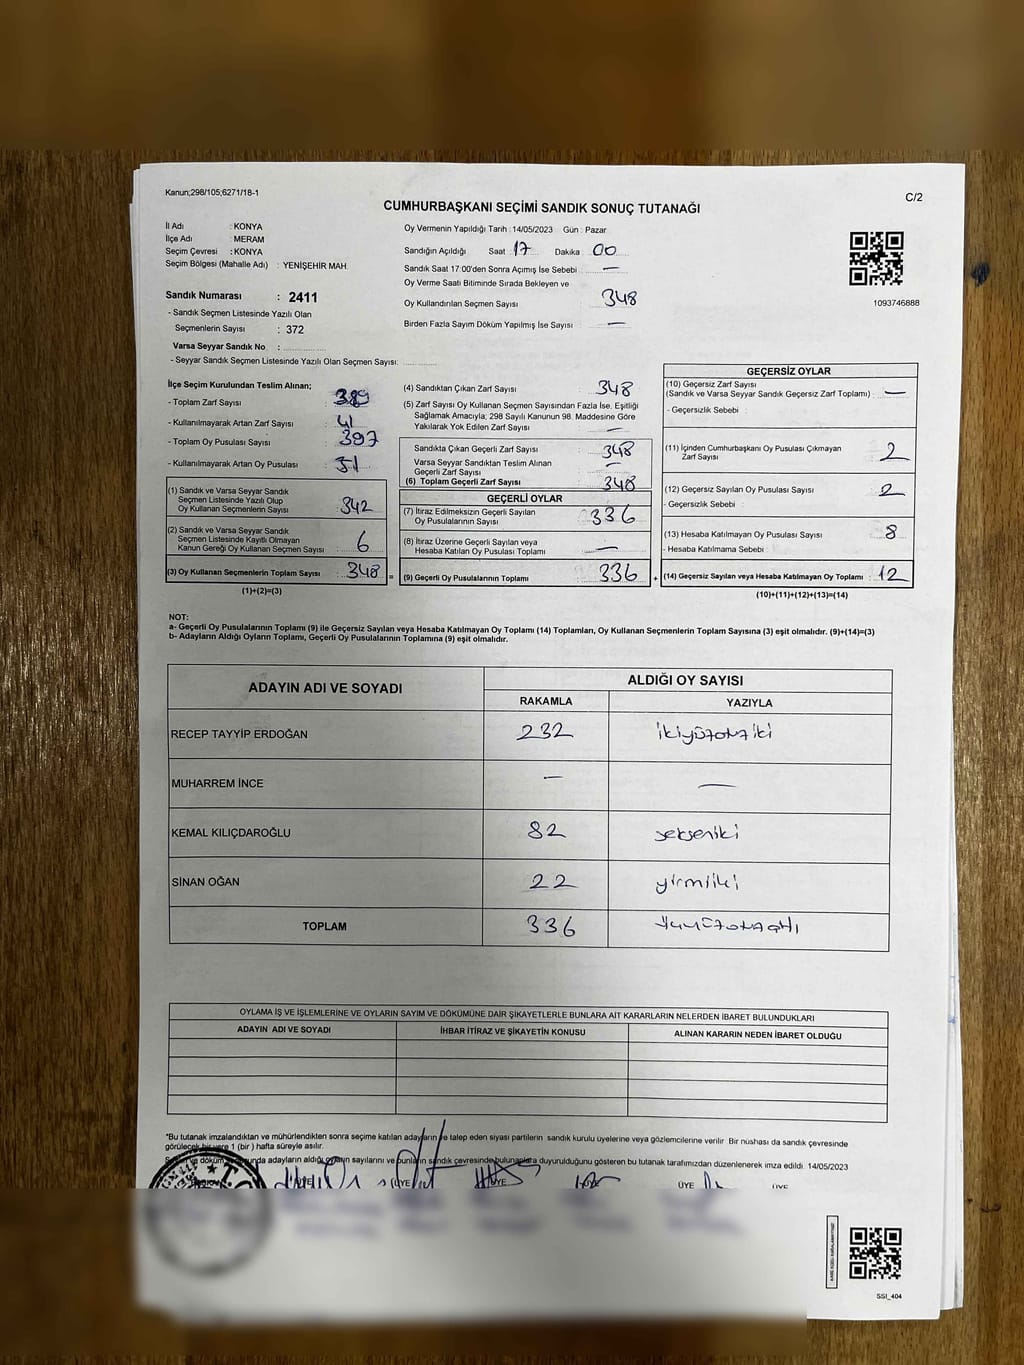 Kanun;298/105;6271/18-1
C/2
CUMHURBAŞKANI SEÇİMİ SANDIK SONUÇ TUTANAĞI
İl Adı : KONYA
İlçe Adı : MERAM
Seçim Çevresi : KONYA
Seçim Bölgesi (Mahalle Adı) : YENİŞEHİR MAH.
Oy Vermenin Yapıldığı Tarih : 14/05/2023 Gün : Pazar
Sandığın Açıldığı Saat 17 Dakika 00
Sandık Saat 17:00'den Sonra Açımış İse Sebebi : —
Oy Verme Saati Bitiminde Sırada Bekleyen ve
Oy Kullandırılan Seçmen Sayısı 348
Birden Fazla Sayım Döküm Yapılmış İse Sayısı : —
1093746888
Sandık Numarası : 2411
- Sandık Seçmen Listesinde Yazılı Olan
Seçmenlerin Sayısı : 372
Varsa Seyyar Sandık No :
- Seyyar Sandık Seçmen Listesinde Yazılı Olan Seçmen Sayısı:
İlçe Seçim Kurulundan Teslim Alınan;
- Toplam Zarf Sayısı : 389
- Kullanılmayarak Artan Zarf Sayısı : 41
- Toplam Oy Pusulası Sayısı : 397
- Kullanılmayarak Artan Oy Pusulası : 51
(1) Sandık ve Varsa Seyyar Sandık
Seçmen Listesinde Yazılı Olup
Oy Kullanan Seçmenlerin Sayısı : 342
(2) Sandık ve Varsa Seyyar Sandık
Seçmen Listesinde Kayıtlı Olmayan
Kanun Gereği Oy Kullanan Seçmen Sayısı : 6
(3) Oy Kullanan Seçmenlerin Toplam Sayısı : 348 =
(1)+(2)=(3)
(4) Sandıktan Çıkan Zarf Sayısı : 348
(5) Zarf Sayısı Oy Kullanan Seçmen Sayısından Fazla İse, Eşitliği
Sağlamak Amacıyla; 298 Sayılı Kanunun 98. Maddesine Göre
Yakılarak Yok Edilen Zarf Sayısı : —
Sandıkta Çıkan Geçerli Zarf Sayısı : 348
Varsa Seyyar Sandıktan Teslim Alınan
Geçerli Zarf Sayısı : —
(6) Toplam Geçerli Zarf Sayısı : 348
GEÇERLİ OYLAR
(7) İtiraz Edilmeksizin Geçerli Sayılan
Oy Pusulalarının Sayısı : 336
(8) İtiraz Üzerine Geçerli Sayılan veya
Hesaba Katılan Oy Pusulası Toplamı : —
(9) Geçerli Oy Pusulalarının Toplamı : 336 +
GEÇERSİZ OYLAR
(10) Geçersiz Zarf Sayısı
(Sandık ve Varsa Seyyar Sandık Geçersiz Zarf Toplamı) : —
- Geçersizlik Sebebi :
(11) İçinden Cumhurbaşkanı Oy Pusulası Çıkmayan
Zarf Sayısı : 2
(12) Geçersiz Sayılan Oy Pusulası Sayısı : 2
- Geçersizlik Sebebi :
(13) Hesaba Katılmayan Oy Pusulası Sayısı : 8
- Hesaba Katılmama Sebebi :
(14) Geçersiz Sayılan veya Hesaba Katılmayan Oy Toplamı : 12
(10)+(11)+(12)+(13)=(14)
NOT:
a- Geçerli Oy Pusulalarının Toplamı (9) ile Geçersiz Sayılan veya Hesaba Katılmayan Oy Toplamı (14) Toplamları, Oy Kullanan Seçmenlerin Toplam Sayısına (3) eşit olmalıdır. (9)+(14)=(3)
b- Adayların Aldığı Oyların Toplamı, Geçerli Oy Pusulalarının Toplamına (9) eşit olmalıdır.
ADAYIN ADI VE SOYADI
ALDIĞI OY SAYISI
RAKAMLA YAZIYLA
RECEP TAYYİP ERDOĞAN 232 ikiyüzotuziki
MUHARREM İNCE — —
KEMAL KILIÇDAROĞLU 82 sekseniki
SİNAN OĞAN 22 yirmiiki
TOPLAM 336
OYLAMA İŞ VE İŞLEMLERİNE VE OYLARIN SAYIM VE DÖKÜMÜNE DAİR ŞİKAYETLERLE BUNLARA AİT KARARLARIN NELERDEN İBARET BULUNDUKLARI
ADAYIN ADI VE SOYADI İHBAR İTİRAZ VE ŞİKAYETİN KONUSU ALINAN KARARIN NEDEN İBARET OLDUĞU
*Bu tutanak imzalandıktan ve mühürlendikten sonra seçime katılan adayların ve talep eden siyasi partilerin sandık kurulu üyelerine veya gözlemcilerine verilir. Bir nüshası da sandık çevresinde
görülecek bir yere 1 (bir) hafta süreyle asılır.
adayların aldığı oyların sayılarını ve bunların sandık çevresinde bulunanlara duyurulduğunu gösteren bu tutanak tarafımızdan düzenlenerek imza edildi. 14/05/2023
ÜYE ÜYE ÜYE ÜYE ÜYE
SSI_404